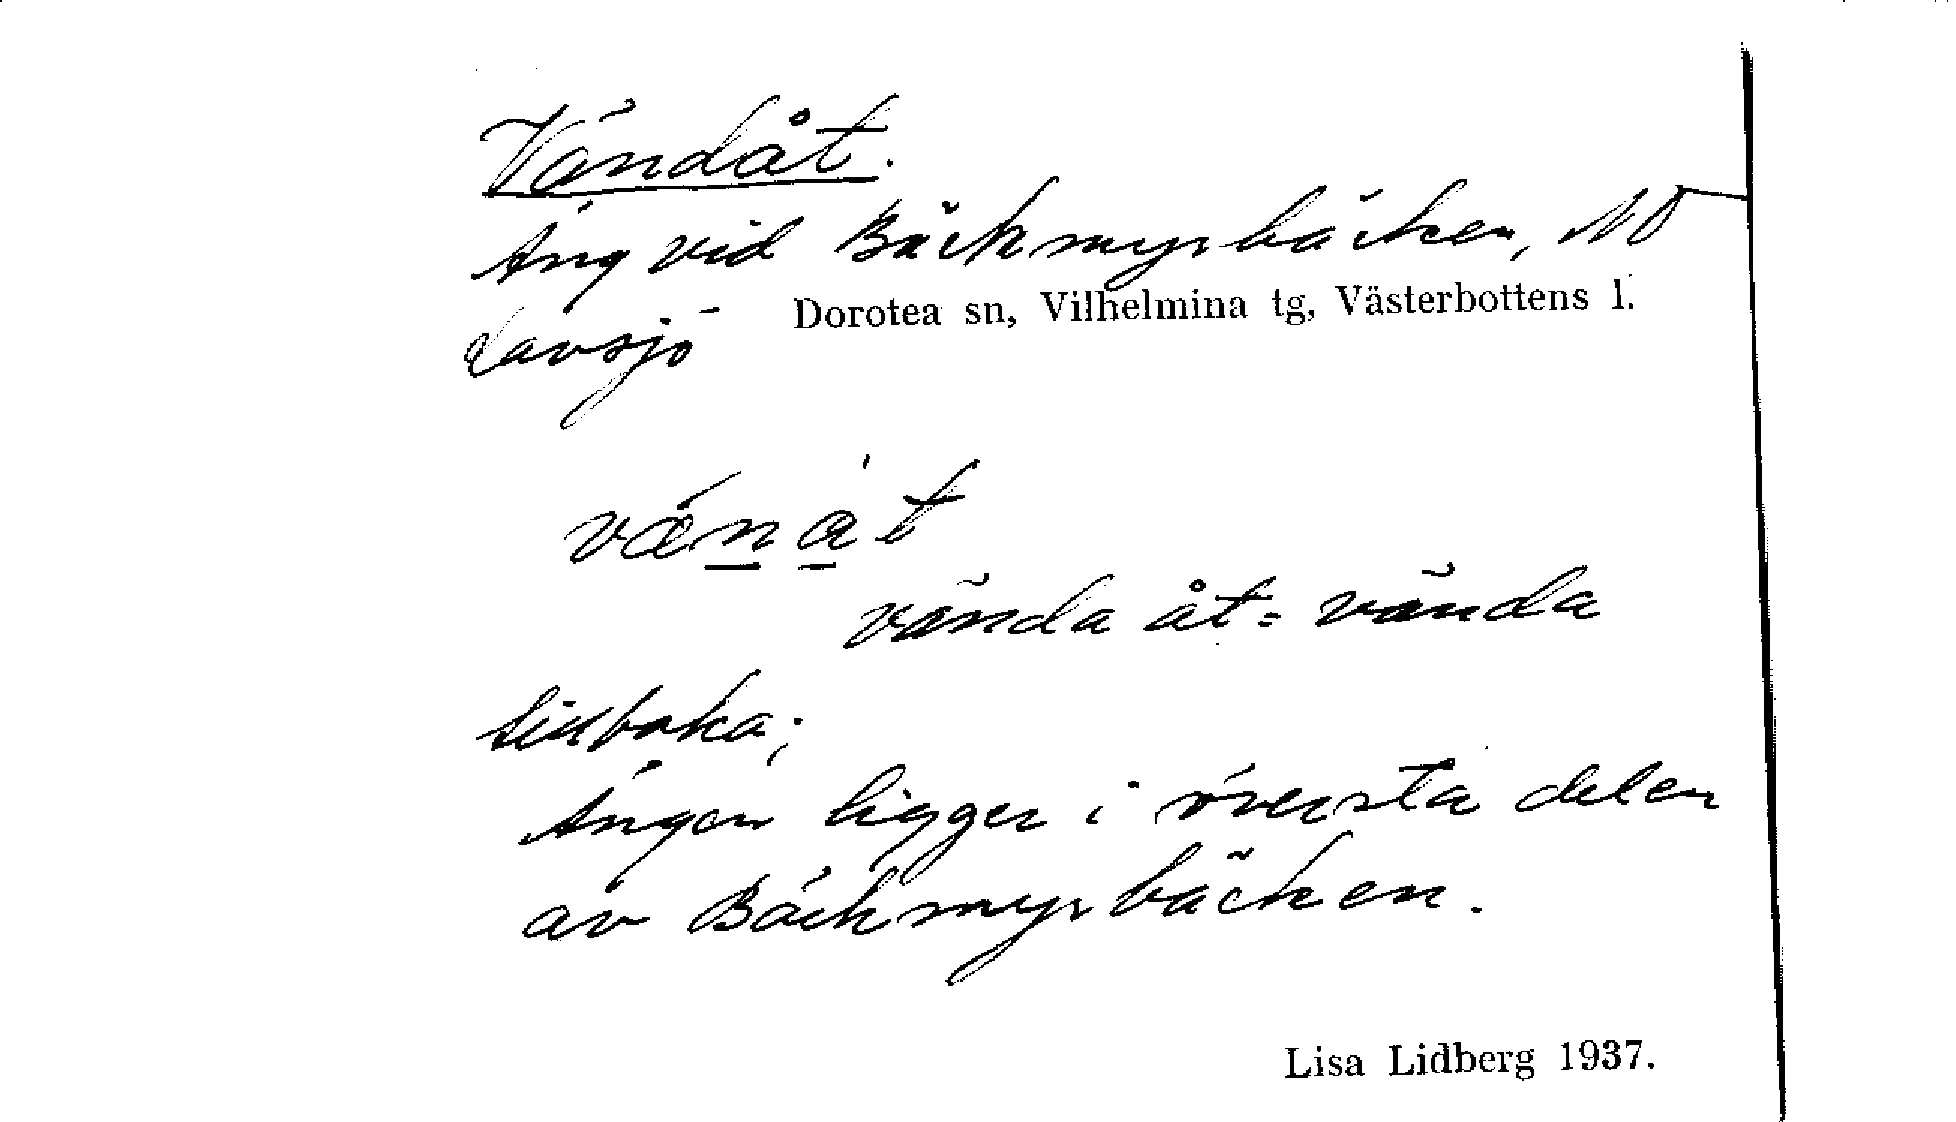 Vändåt.
Äng vid Bäckmyrbäcken, NO
Dorotea sn, Vilhelmina tg, Västerbottens l.
Lavsjö
vænat
vända åt = vända
tillbaka;
Ängen ligger i översta delen
av Bäckmyrbäcken.
Lisa Lidberg 1937.